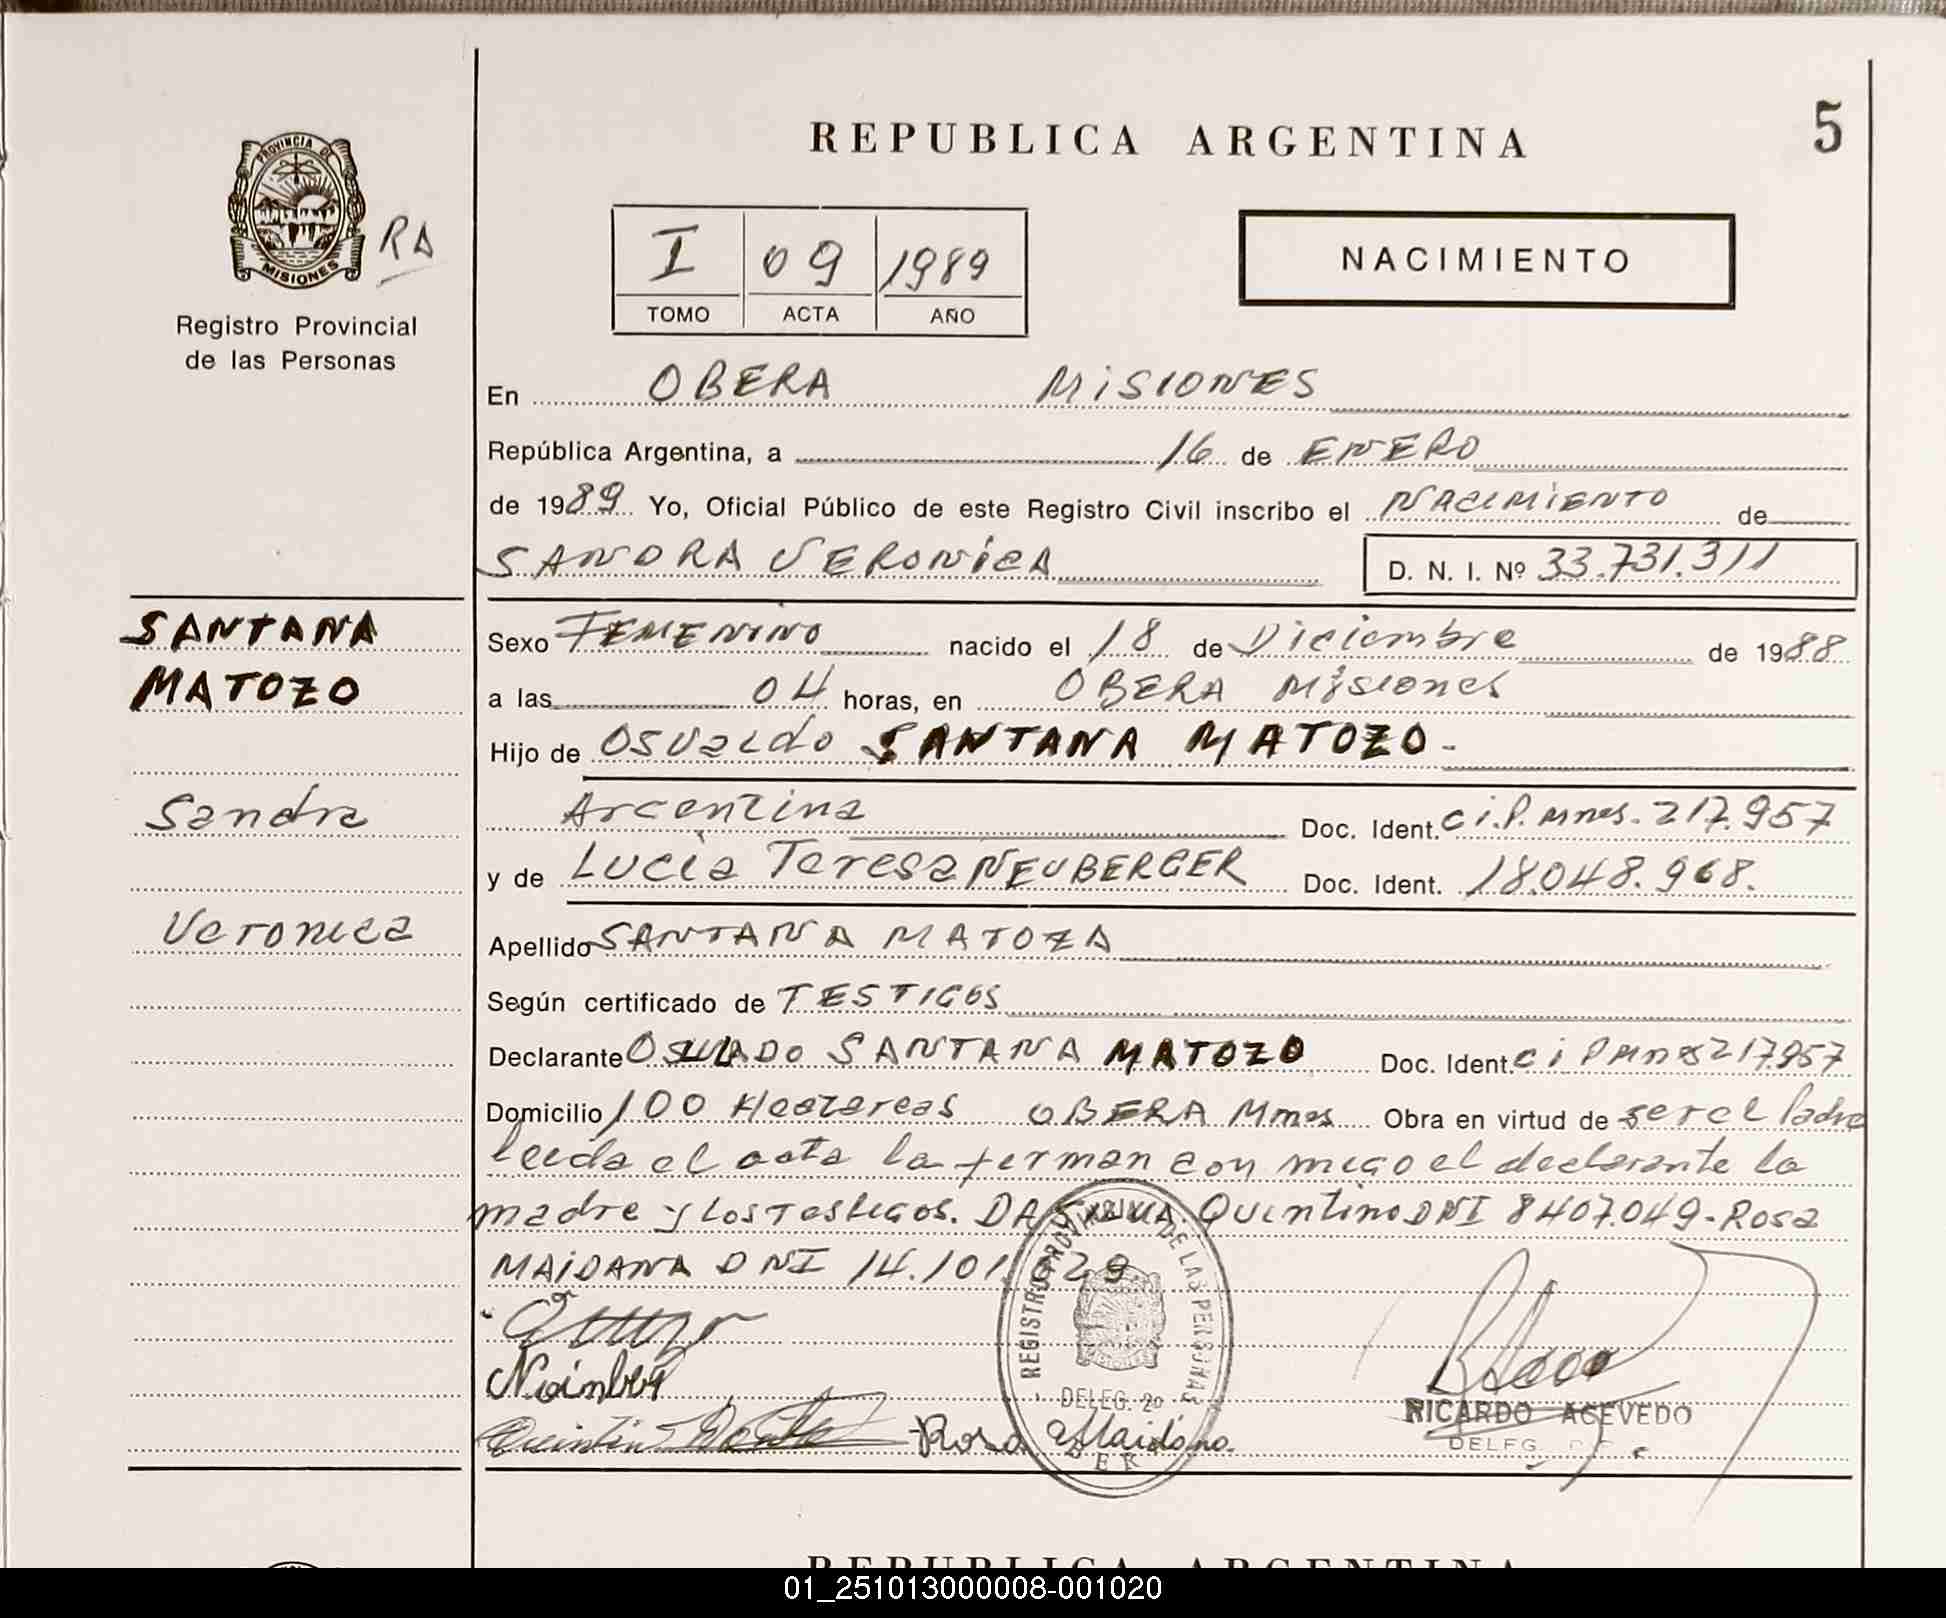 REPUBLICA ARGENTINA
5
PROVINCIA DE
MISIONES
RA
Registro Provincial
de las Personas
I 09 1989
TOMO ACTA AÑO
NACIMIENTO
En OBERA MISIONES
República Argentina, a 16 de ENERO
de 1989 Yo, Oficial Público de este Registro Civil inscribo el NACIMIENTO de
SANDRA VERONICA D. N. I. Nº 33.731.311
SANTANA
MATOZO
Sandra
Veronica
Sexo FEMENINO nacido el 18 de Diciembre de 1988
a las 04 horas, en OBERA Misiones
Hijo de Osvaldo SANTANA MATOZO.
Argentina Doc. Ident. C i. P. mnes. 217.957
y de Lucia Teresa NEUBERGER Doc. Ident. 18.048.968.
Apellido SANTANA MATOZA
Según certificado de TESTIGOS
Declarante OSVLADO SANTANA MATOZO Doc. Ident. C i P mnes 217.957
Domicilio 100 Hectareas OBERA Mnes Obra en virtud de ser el Padre
leida el acta la firman con migo el declarante la
madre y los Testigos. DA SILVA Quintino DNI 8407.049-Rosa
MAIDANA DNI 14.101. 29
REGISTRO PROVINCIAL DE LAS PERSONAS
MISIONES
DELEG. 2º
Rosa Maidana.
RICARDO ACEVEDO
DELEG.
REPUBLICA ARGENTINA
01_251013000008-001020